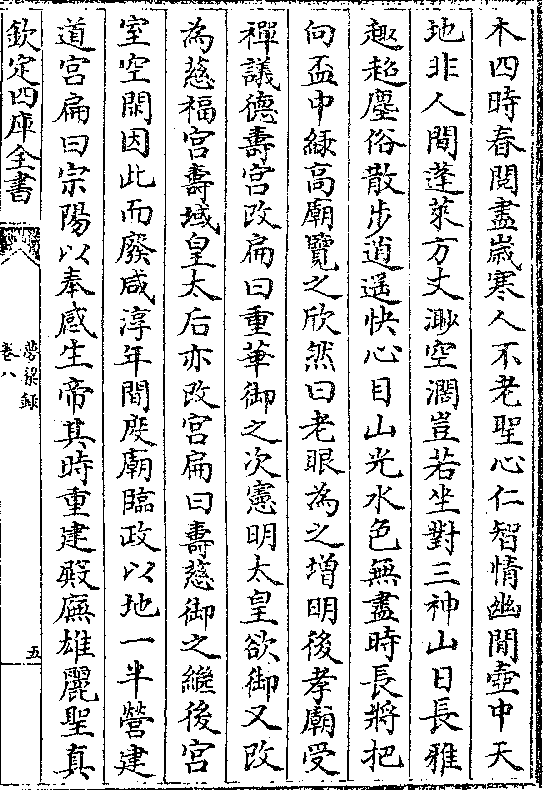 木四時春閱盡嵗寒人不老聖心仁智情幽閒壺中天
地非人間蓬萊方丈渺空濶豈若坐對三神山日長雅
趣超塵俗散步逍遥快心目山光水色無盡時長將挹
向盃中緑高廟覽之欣然曰老眼為之增明後孝廟受
禪議德壽宫改扁曰重華御之次憲明太皇欲御又改
為慈福宫壽域皇太后亦改宫扁曰壽慈御之繼後宫
室空閒因此而廢咸淳年間度廟臨政以地一半營建
道宫扁曰宗陽以奉感生帝其時重建殿廡雄麗聖真
欽定四庫全書
夢粱録
卷八
五